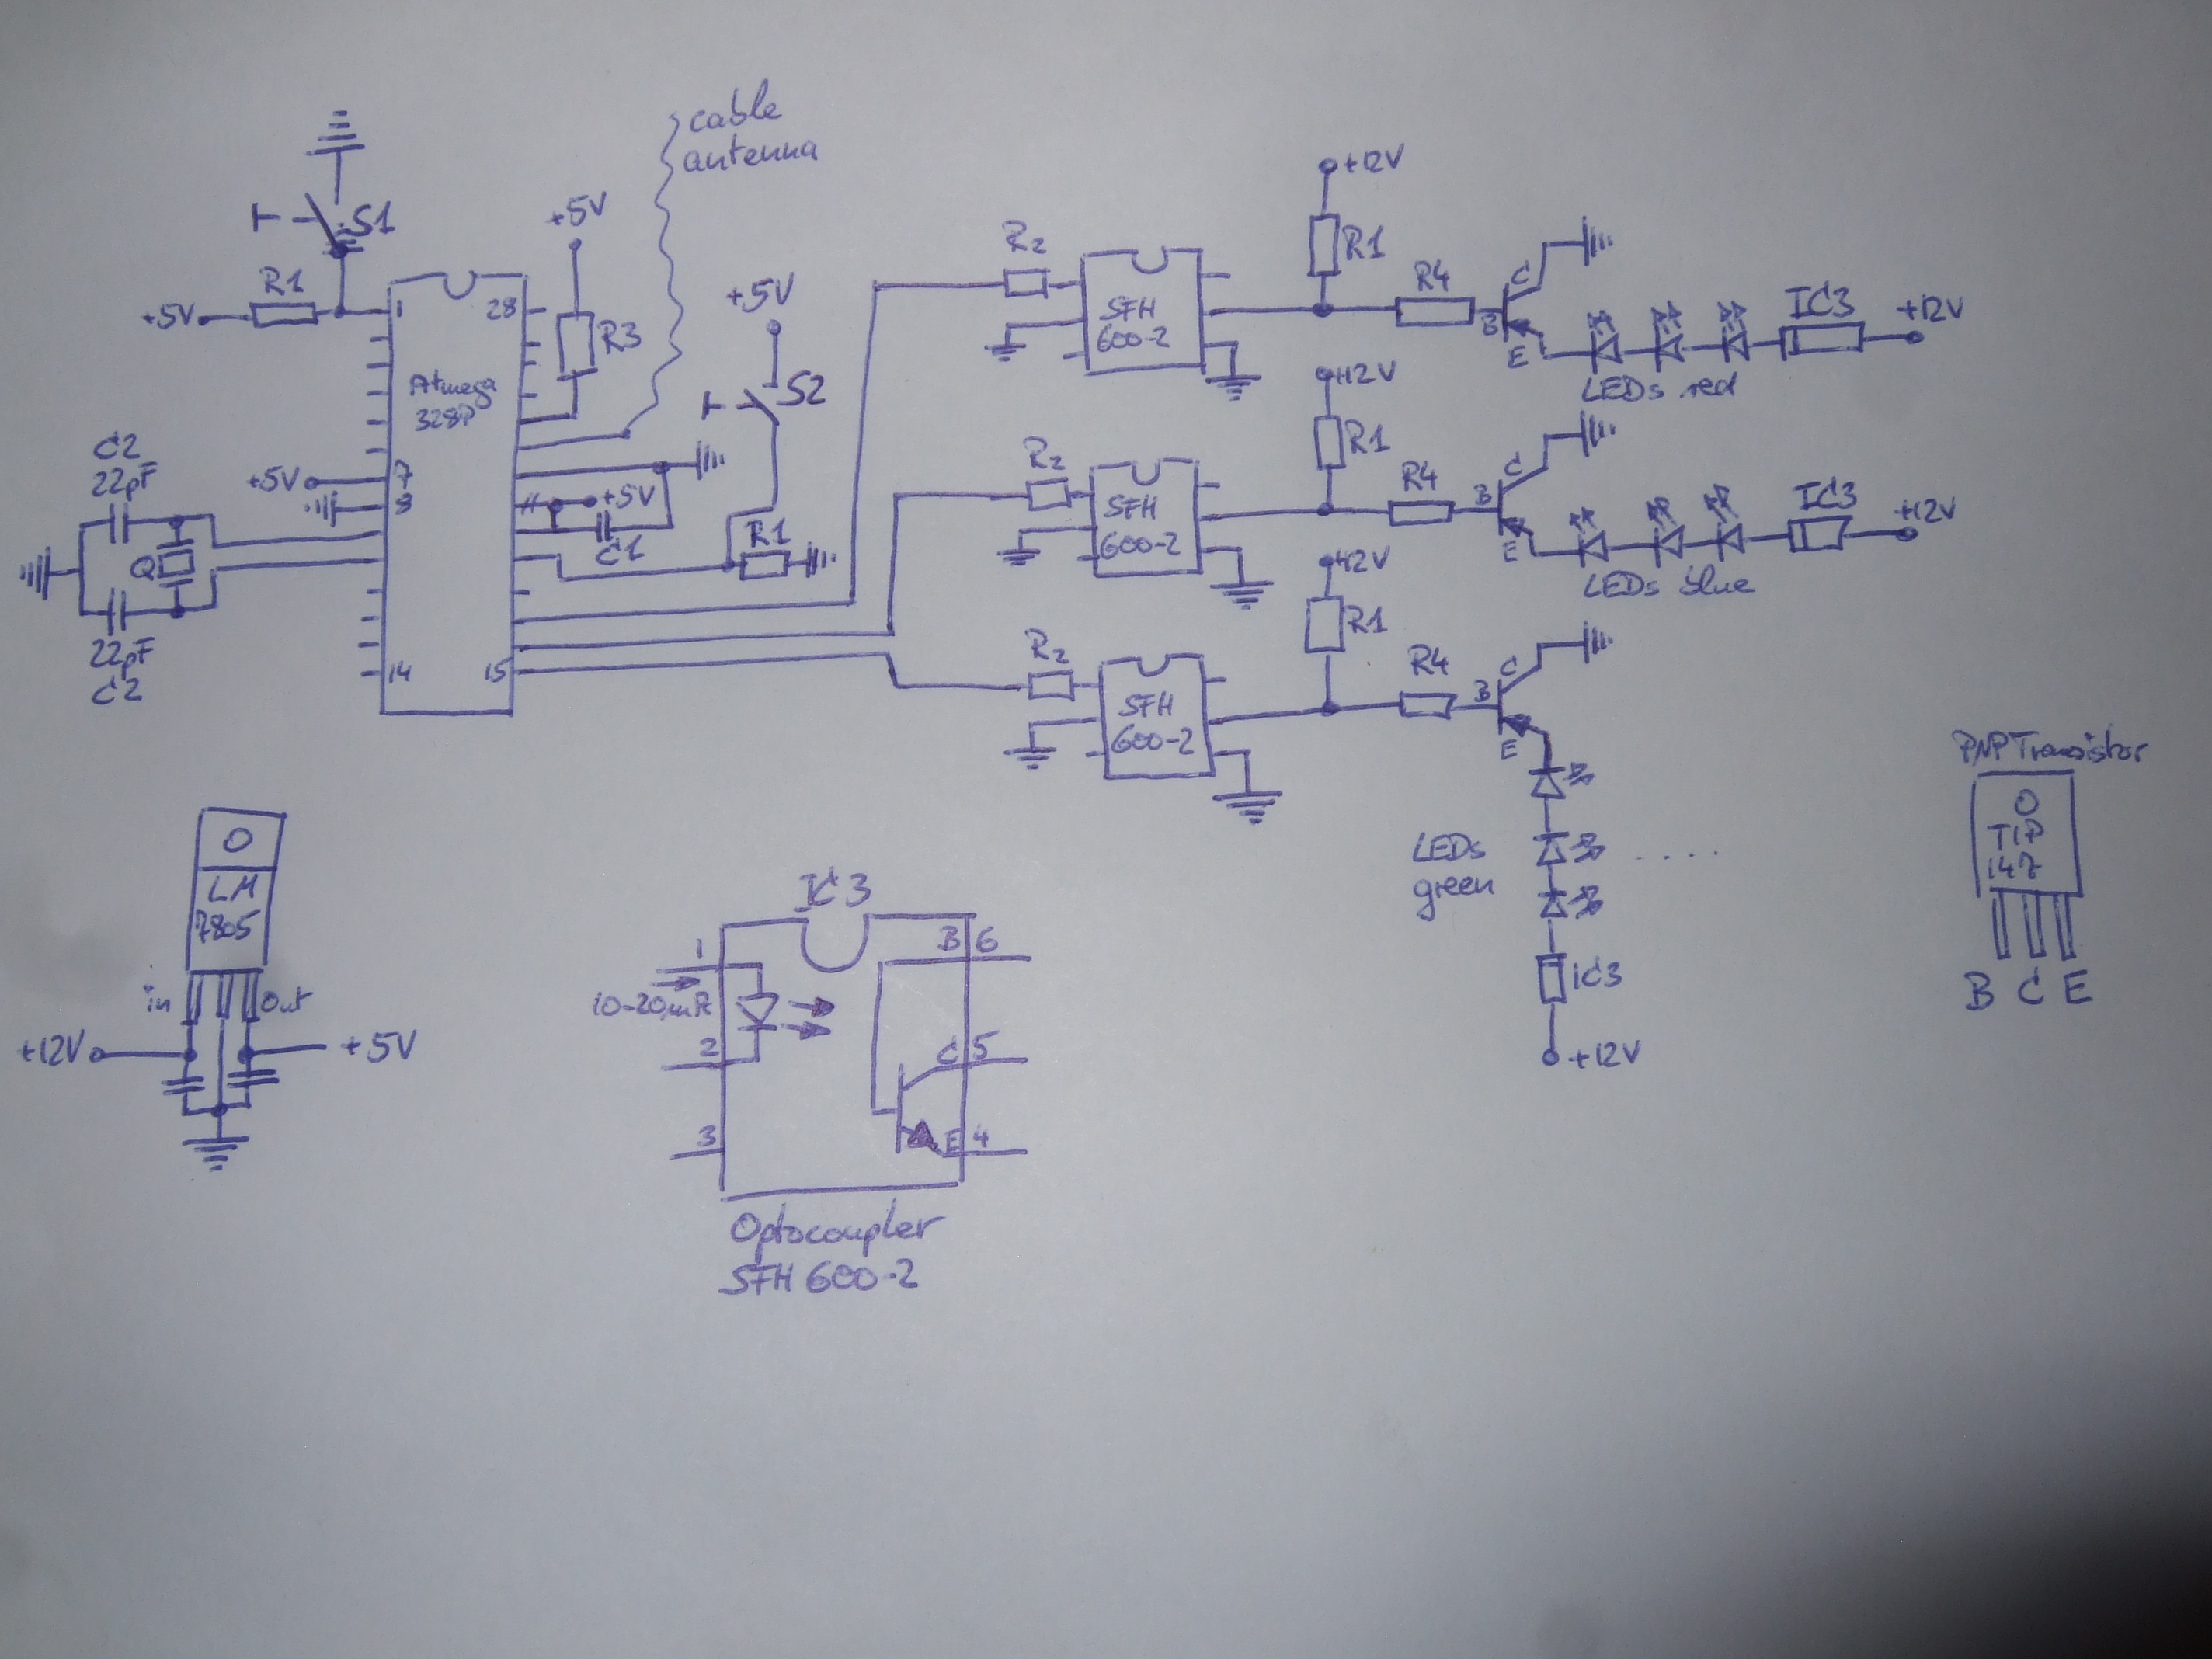 cable
antenna
S1
+5V
R1
+5V
1
28
R3
Atmega
328P
+5V
S2
C2
22pF
+5V
7
8
+5V
C1
R1
Q
22pF
C2
14
15
R2
SFH
600-2
+12V
R1
R4
C
B
E
LEDs red
IC3
+12V
R2
SFH
600-2
+12V
R1
R4
C
B
E
LEDs blue
IC3
+12V
R2
SFH
600-2
+12V
R1
R4
C
B
E
LEDs
green
....
IC3
+12V
PNP Transistor
TIP
147
B C E
LM
7805
in
Out
+12V
+5V
IC3
1
B 6
10-20mA
2
C 5
3
E 4
Optocoupler
SFH 600-2